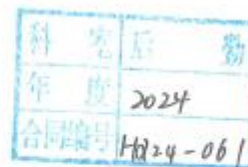 科 室 后 勤
年 度 2024
合同编号 HQ24-061